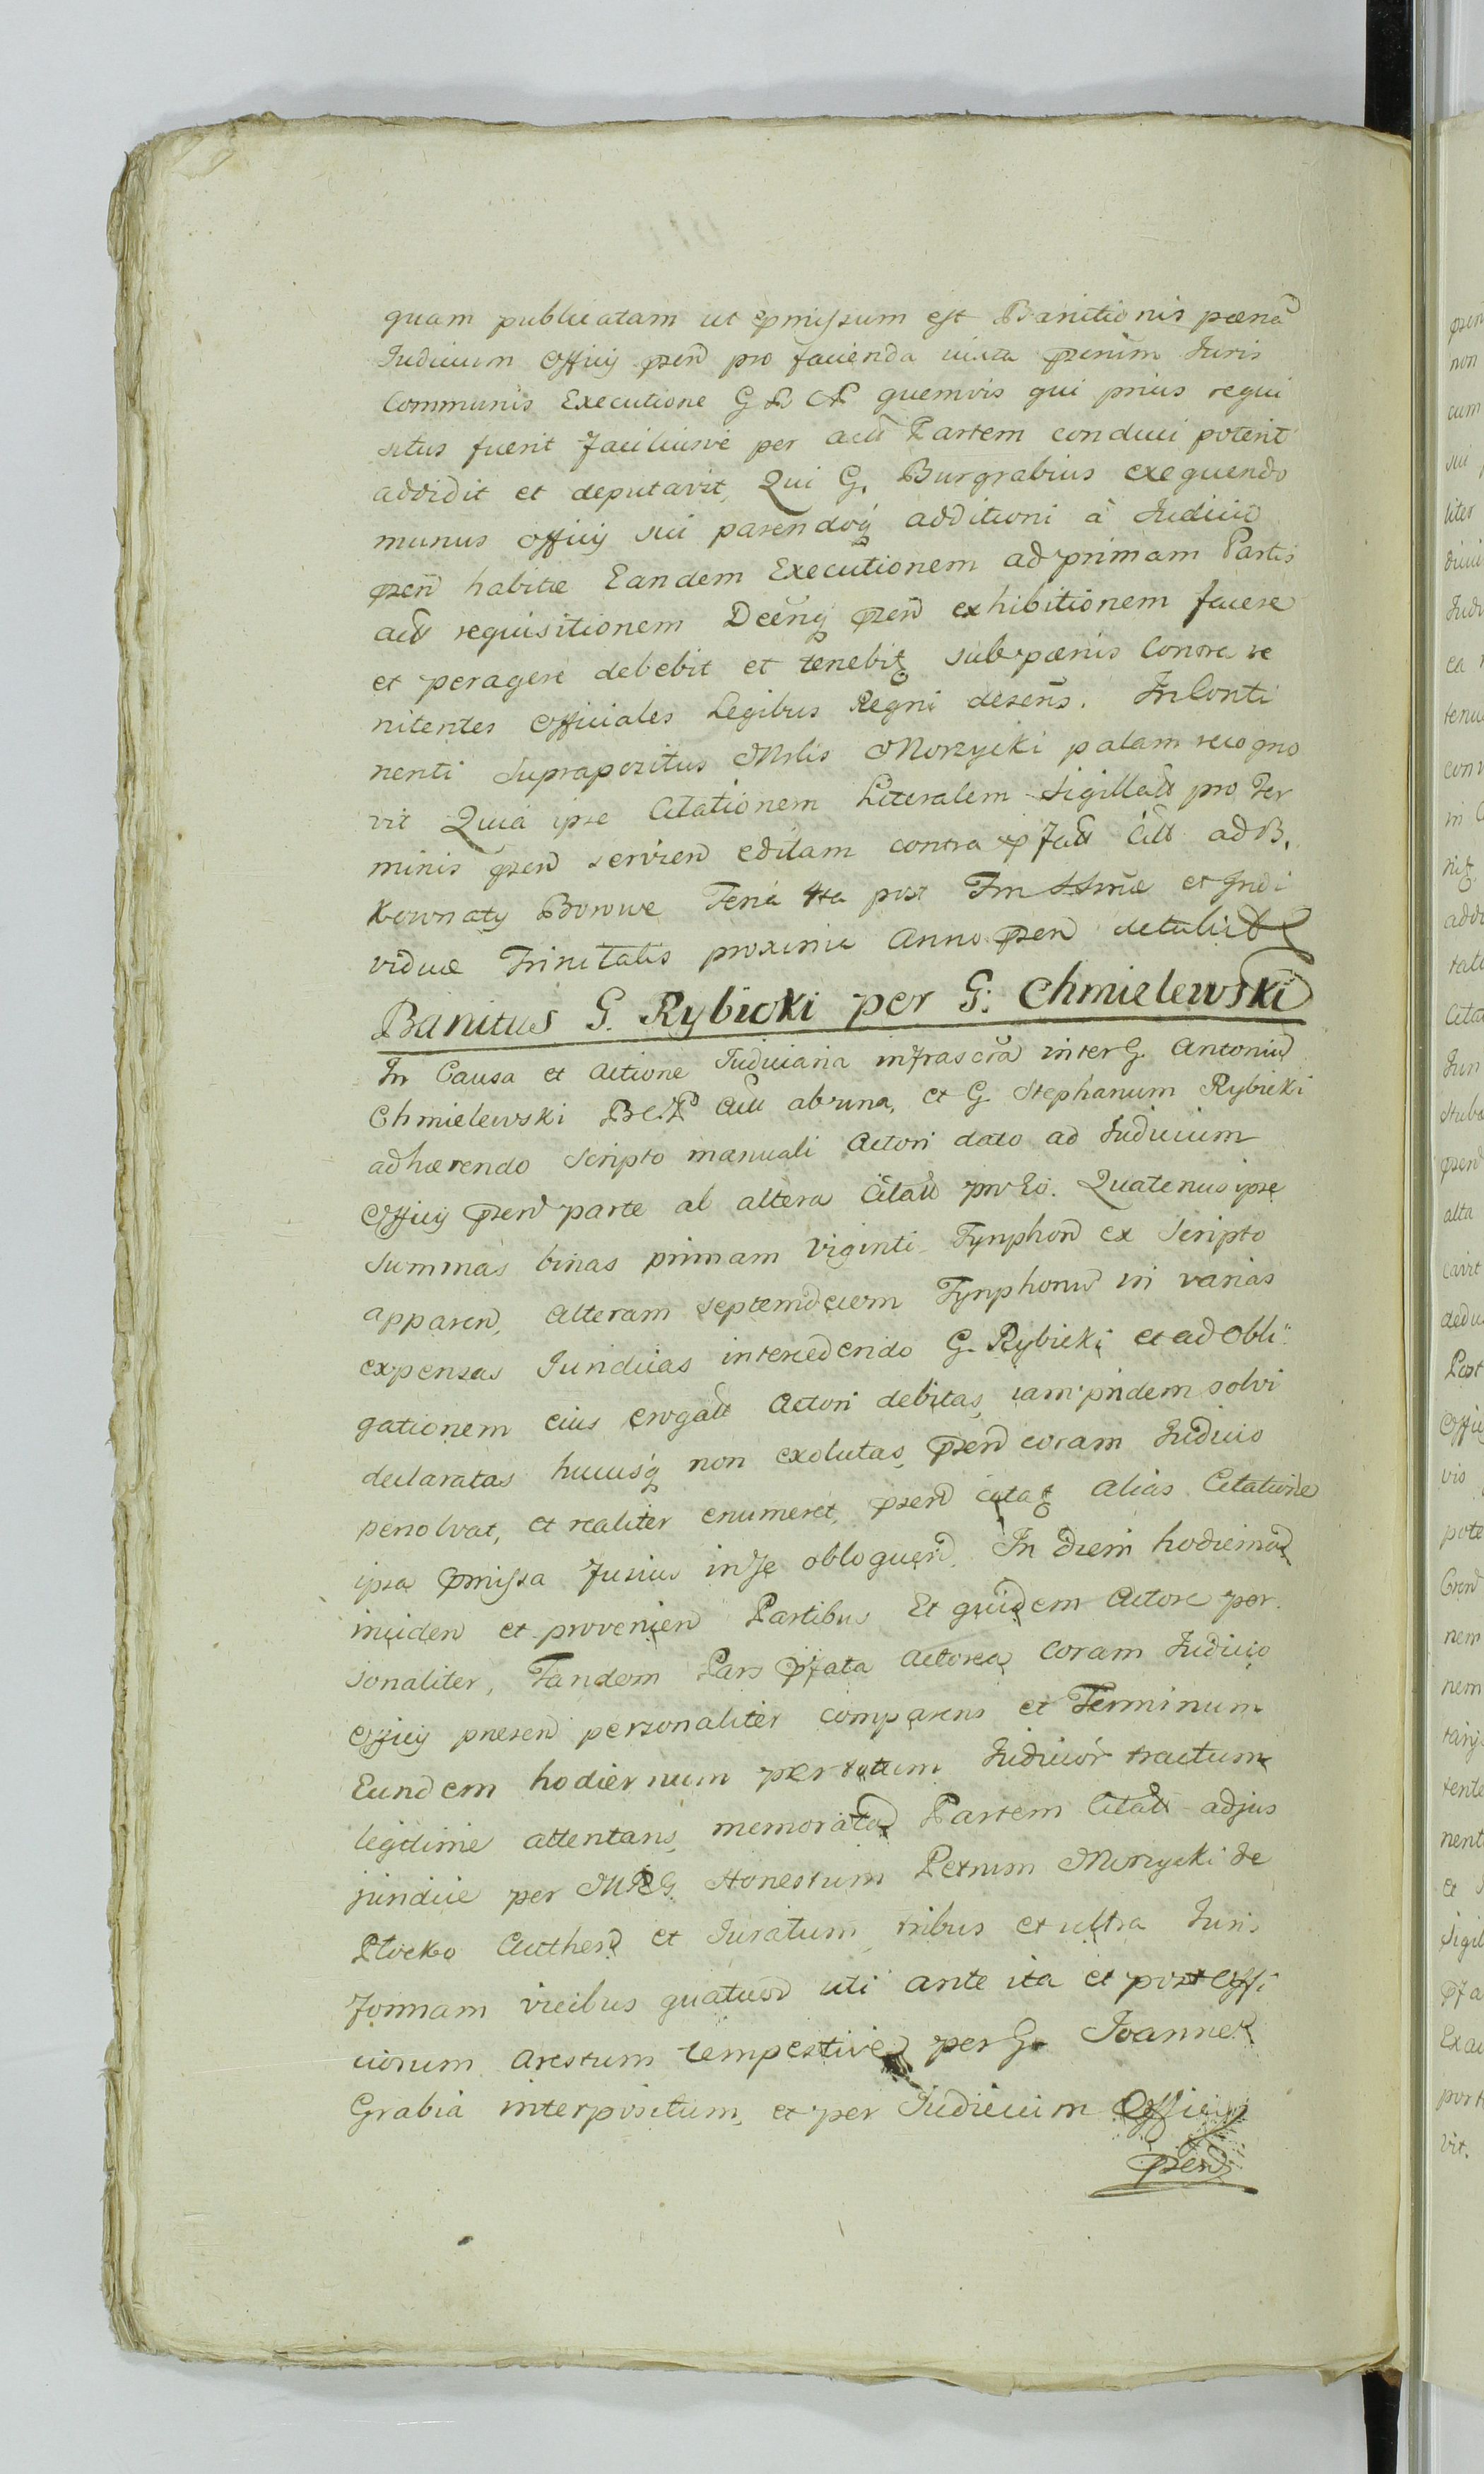 quam publicatam ut pmissum est Banitionis pænã
Iudicium Officij psen pro facienda iuxta psenim Iuris
Communis Executione G B P quemvis qui prius requi
situs fuerit faciliusve per actt Partem conduci poterit
addidit et deputavit, Qui G. Burgrabius exequendo
munus Officij sui parendoq additioni à Iudicio
psen habitæ Eandem Executionem ad primam Partis
actt requisitionem Decnq psen exhibitionem facere
et peragere debebit et tenebit sub pænis Contra re
nitentes Officiales Legibus Regni desens. In Conti
nenti Supraposítus Mrlis Morzycki palam recogno
vit Quia ipse Citationem Literalem Sigillatt pro Ter
minis psen servien editam contra pfatt Citt ad B.
Kownaty Borowe Feria 4ta post Fm SSmæ et Indi
viduæ Trinitatis proxime Anno psen detulit
Banitus G. Rybicki per G. Chmielewski
In Causa et Actione Iudiciaria infrascrã inter G. Antoniu
Chmielewski actt ab una, et G. Stephanum Rybicki
adhærendo Scripto manuali Actori dato ad Iudicium
Officij psen parte ab altera Citatt pro Eo. Quatenus ipse
Summas binas primam Viginti Tynphon ex Scripto
apparen, alteram septemdecem Tynphonu in varias
expensas Iuridicas intercedendo G. Rybicki et ad Obli
gationem eius erogatt Actori debitas, iam pridem solvi
declaratas hucusq non exolutas, psen coram Iudicio
persolvat, et realiter enumeret, psen citat alias Citatione
ipsa pmissa fusius in Se obloquen. In diem hodiernã
inciden et provenien Partibus Et quidem Actore per
sonaliter, Tandem Pars pfata Actorea Coram Iudicio
Officij presen personaliter comparens et Terminum
Eundem hodiernum per totum Iudicior tractum
legitime attentans, memoratã Partem Citatt adjus
juridice per MRG Honestum Petrum Morzycki de
Plocko Authen et Iuratum, tribus et ultra Iuris
formam vicibus quatuor uti ante ita et post Offi
ciorum Arestum tempestive per G. Joannem
Grabia interpositum, et per Iudicium Officij
psen